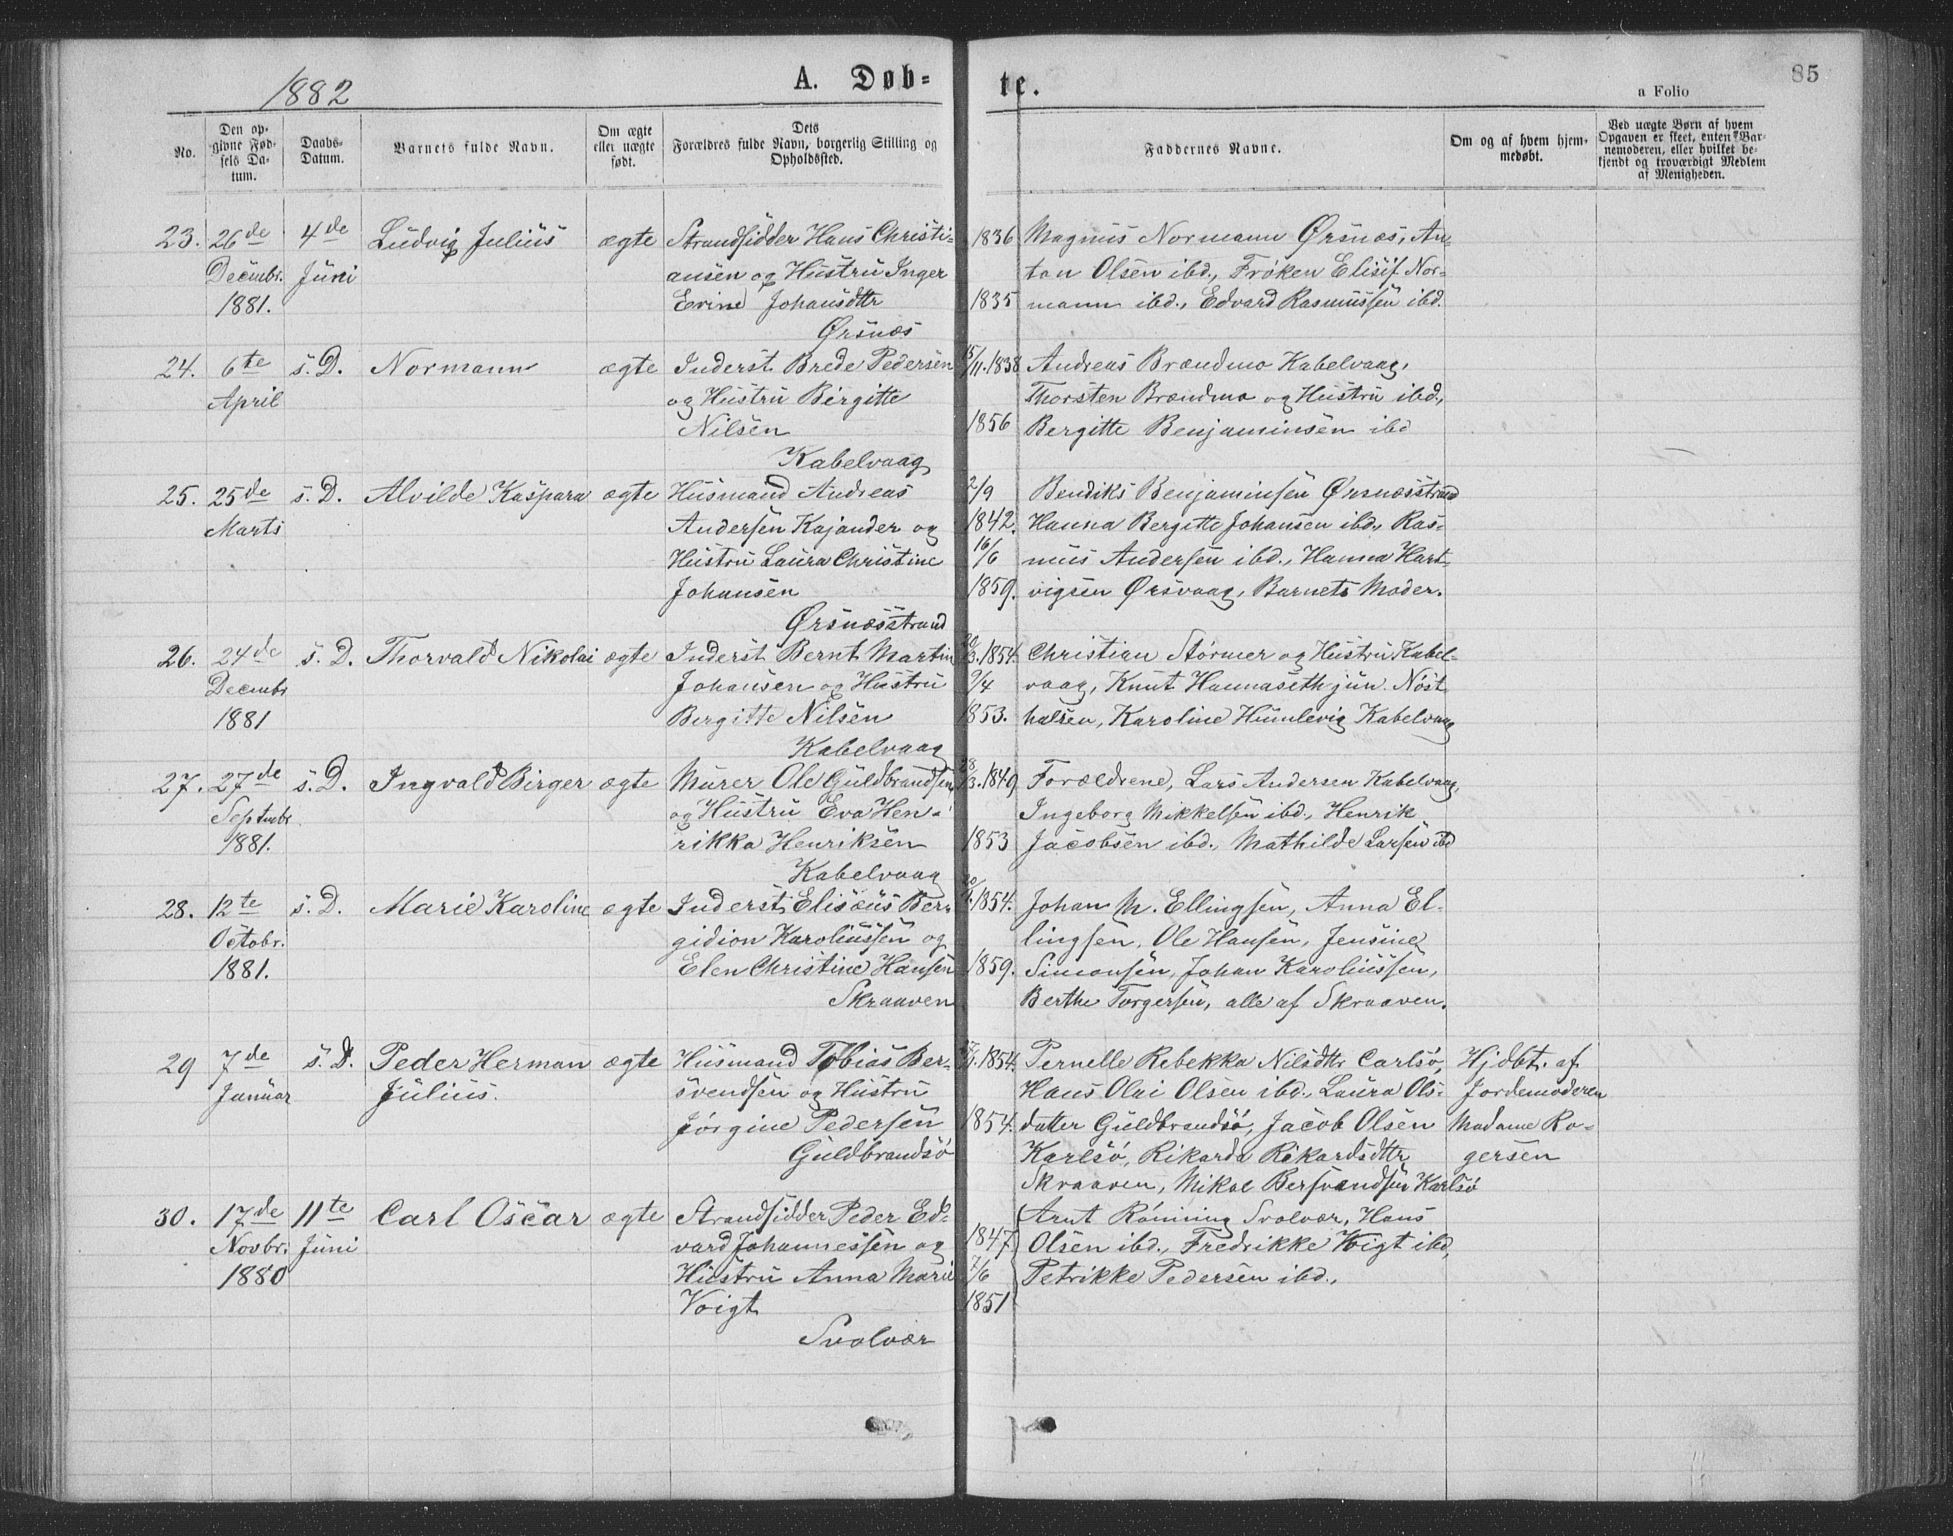 1882
A. Døb-
te.
a Folio
85
No.
Den op-
givne Fød-
sels Da-
tum.
Daabs-
Datum.
Barnets fulde Navn.
Om ægte
eller uægte
født.
Dets
Forældres fulde Navn, borgerlig Stilling og
Opholdssted.
Faddernes Navne.
Om og af hvem hjem-
medøbt.
Ved uægte Børn af hvem
Opgaven er skeet, enten Bar-
nemoderen, eller hvilket be-
kjendt og troværdigt Medlem
af Menigheden.
23. 26de 4de Ludvig Julius ægte Strandsidder Hans Christi- 1836 Magnus Normann Ørsnæs, An-
Decembr. Juni ansen og Hustru Inger ton Olsen ibd., Frøken Elisif Nor-
1881. Erine Johansdtr 1835 mann ibd., Edvard Rasmussen ibd.
Ørsnæs
24. 6te s. D. Normann ægte Inderst Brede Pedersen 15/11.1838 Andreas Brændmo Kabelvaag,
April og Hustru Birgitte Thorsten Brændmo og Hustru ibd,
Nilsen 1856 Bergitte Benjaminsen ibd
Kabelvaag
25. 25de s. D. Alvilde Kaspara ægte Husmand Andreas 2/9 Bendiks Benjaminsen Ørsnæsstrand
Marts Andersen Kajander og 1842. Hanna Bergitte Johansen ibd., Ras-
Hustru Laura Christine 16/6 mus Andersen ibd., Hanna Hart-
Johansen 1859. vigsen Ørsvaag, Barnets Moder.
Ørsnæsstrand
26. 24de s. D. Thorvald Nikolai ægte Inderst Bernt Martin 1854. Christian Størmer og Hustru Kabel-
Decembr Johansen og Hustru 9/4 vaag, Knut Hannaseth jun. Nøst
1881 Bergitte Nilsen 1853. halsen, Karoline Humlevig Kabelvaag
Kabelvaag
27. 27de s. D. Ingvald Birger ægte Murer Ole Guldbrandsen 1849 Forældrene, Lars Andersen Kabelvaag,
Septmbr. og Hustru Eva Hen- Ingeborg Mikkelsen ibd., Henrik
1881. rikka Henriksen 1853 Jacobsen ibd., Mathilde Larsen ibd
Kabelvaag
28. 12te s. D. Marie Karoline ægte Inderst Elisæus Ber- 1854. Johan M. Ellingsen, Anna El-
Octobr. gidion Karoliussen og lingsen, Ole Hansen, Jensine
1881. Elen Christine Hansen 1859. Simonsen, Johan Karoliussen,
Skraaven Berthe Torgersen, alle af Skraaven.
29 7de s. D. Peder Herman ægte Husmand Tobias Ber- 1854. Pernelle Rebekka Nilsdtr Carlsö, Hjdbt. af
Januar Julius. svendsen og Hustru Hans Olai Olsen ibd., Laura Ols- Jordemoderen
Jørgine Pedersen 1854. datter Guldbrandsö, Jacob Olsen Madame Ro-
Guldbrandsö Karlsö, Rikarda Rikardsdtr gersen
Skraaven, Mikal Bersvendsen Karlsö
30. 17de 11te Carl Oscar ægte Strandsidder Peder Ed- Arnt Rönning Svolvær, Hans
Novbr. Juni vard Johannessen og 1847 Olsen ibd., Fredrikke Voigt ibd,
1880 Hustru Anna Marie 7/6 Petrikke Pedersen ibd.,
Voigt 1851
Svolvær